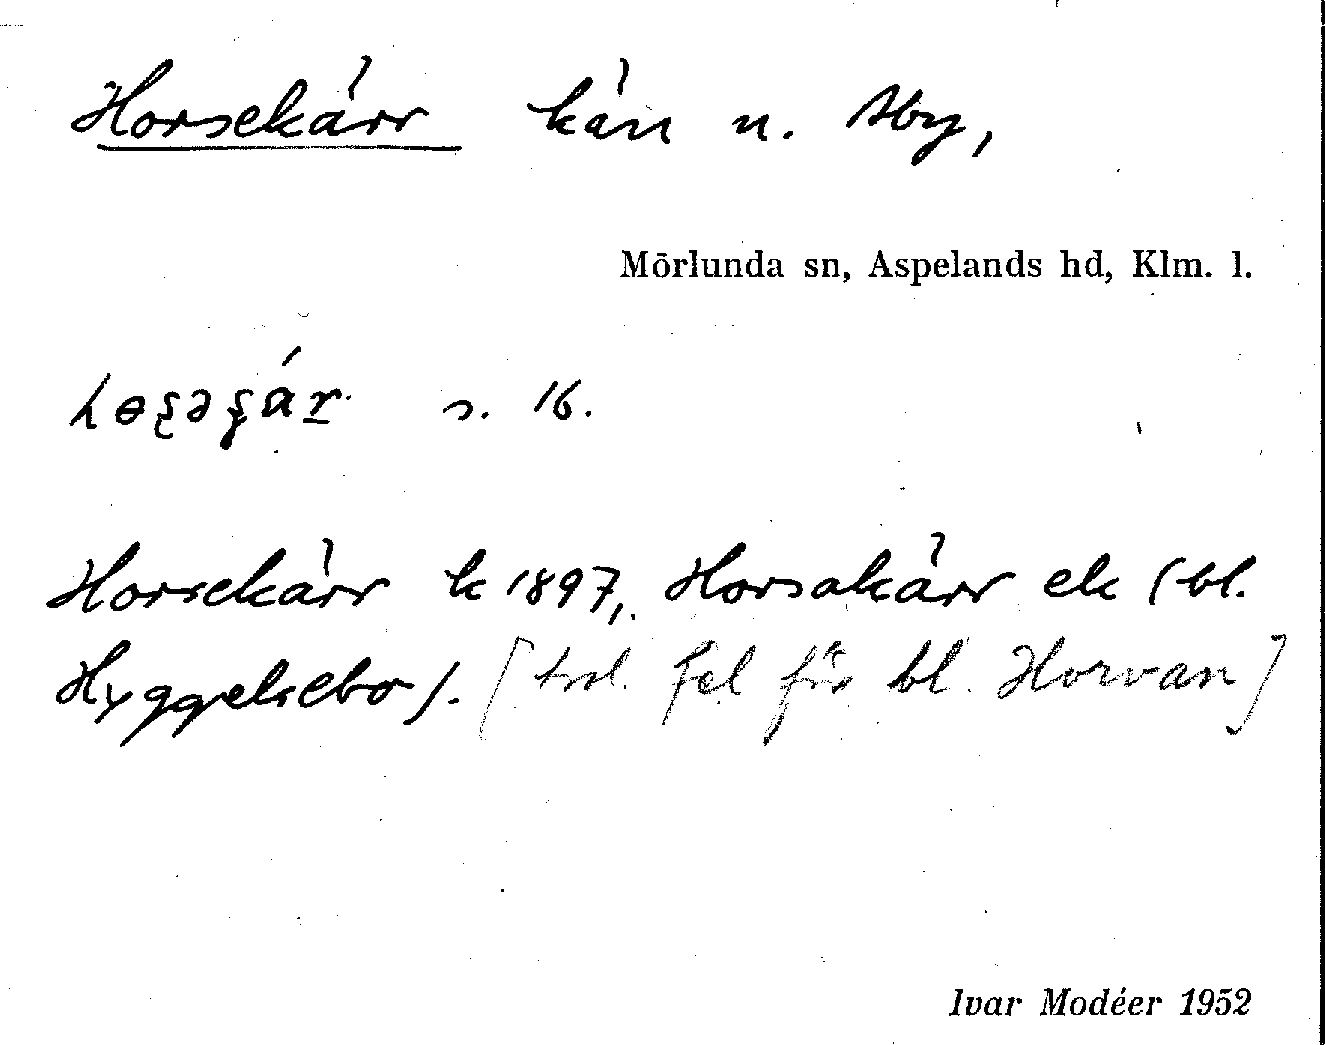 Horsekärr kärr n. Åby,
Mörlunda sn, Aspelands hd, Klm. l.
s. 16.
Horsekärr k 1897, Horsakärr ek (bl.
Hyggelsebo). [trol. fel för bl. Horvan]
Ivar Modéer 1952